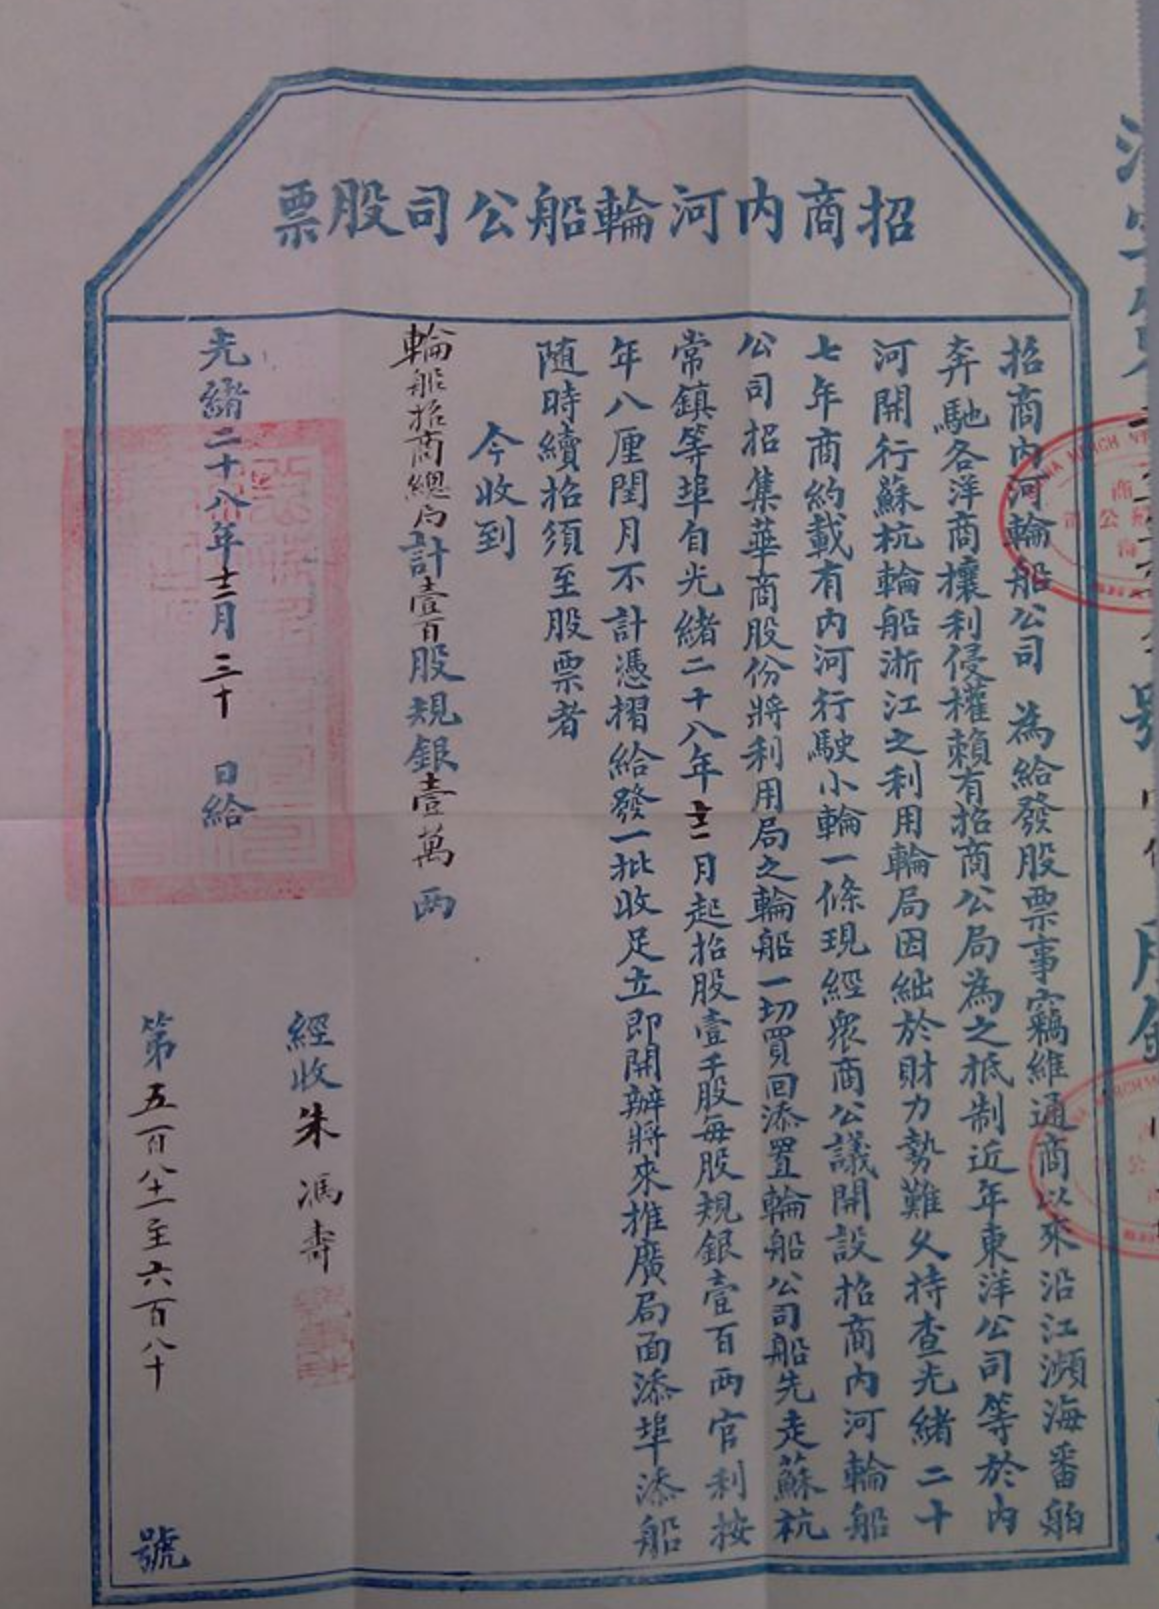 招商內河輪船公司股票
招商內河輪船公司 為給發股票事竊維通商以來沿江瀕海番舶
奔馳各洋商攘利侵權賴有招商公局為之抵制近年東洋公司等於內
河開行蘇杭輪船浙江之利用輪局因絀於財力勢難久持查光緒二十
七年商約載有內河行駛小輪一條現經衆商公議開設招商內河輪船
公司招集華商股份將利用局之輪船一切買回添置輪船公司船先走蘇杭
常鎮等埠自光緒二十八年十二月起招股壹千股每股規銀壹百兩官利按
年八厘閏月不計憑摺給發一批收足立即開辦將來推廣局面添埠添船
随時續招須至股票者
今收到
輪船招商總局計壹百股規銀壹萬兩
經收朱馮壽
光緒二十八年十二月三十日給
第五百八十一至六百八十號